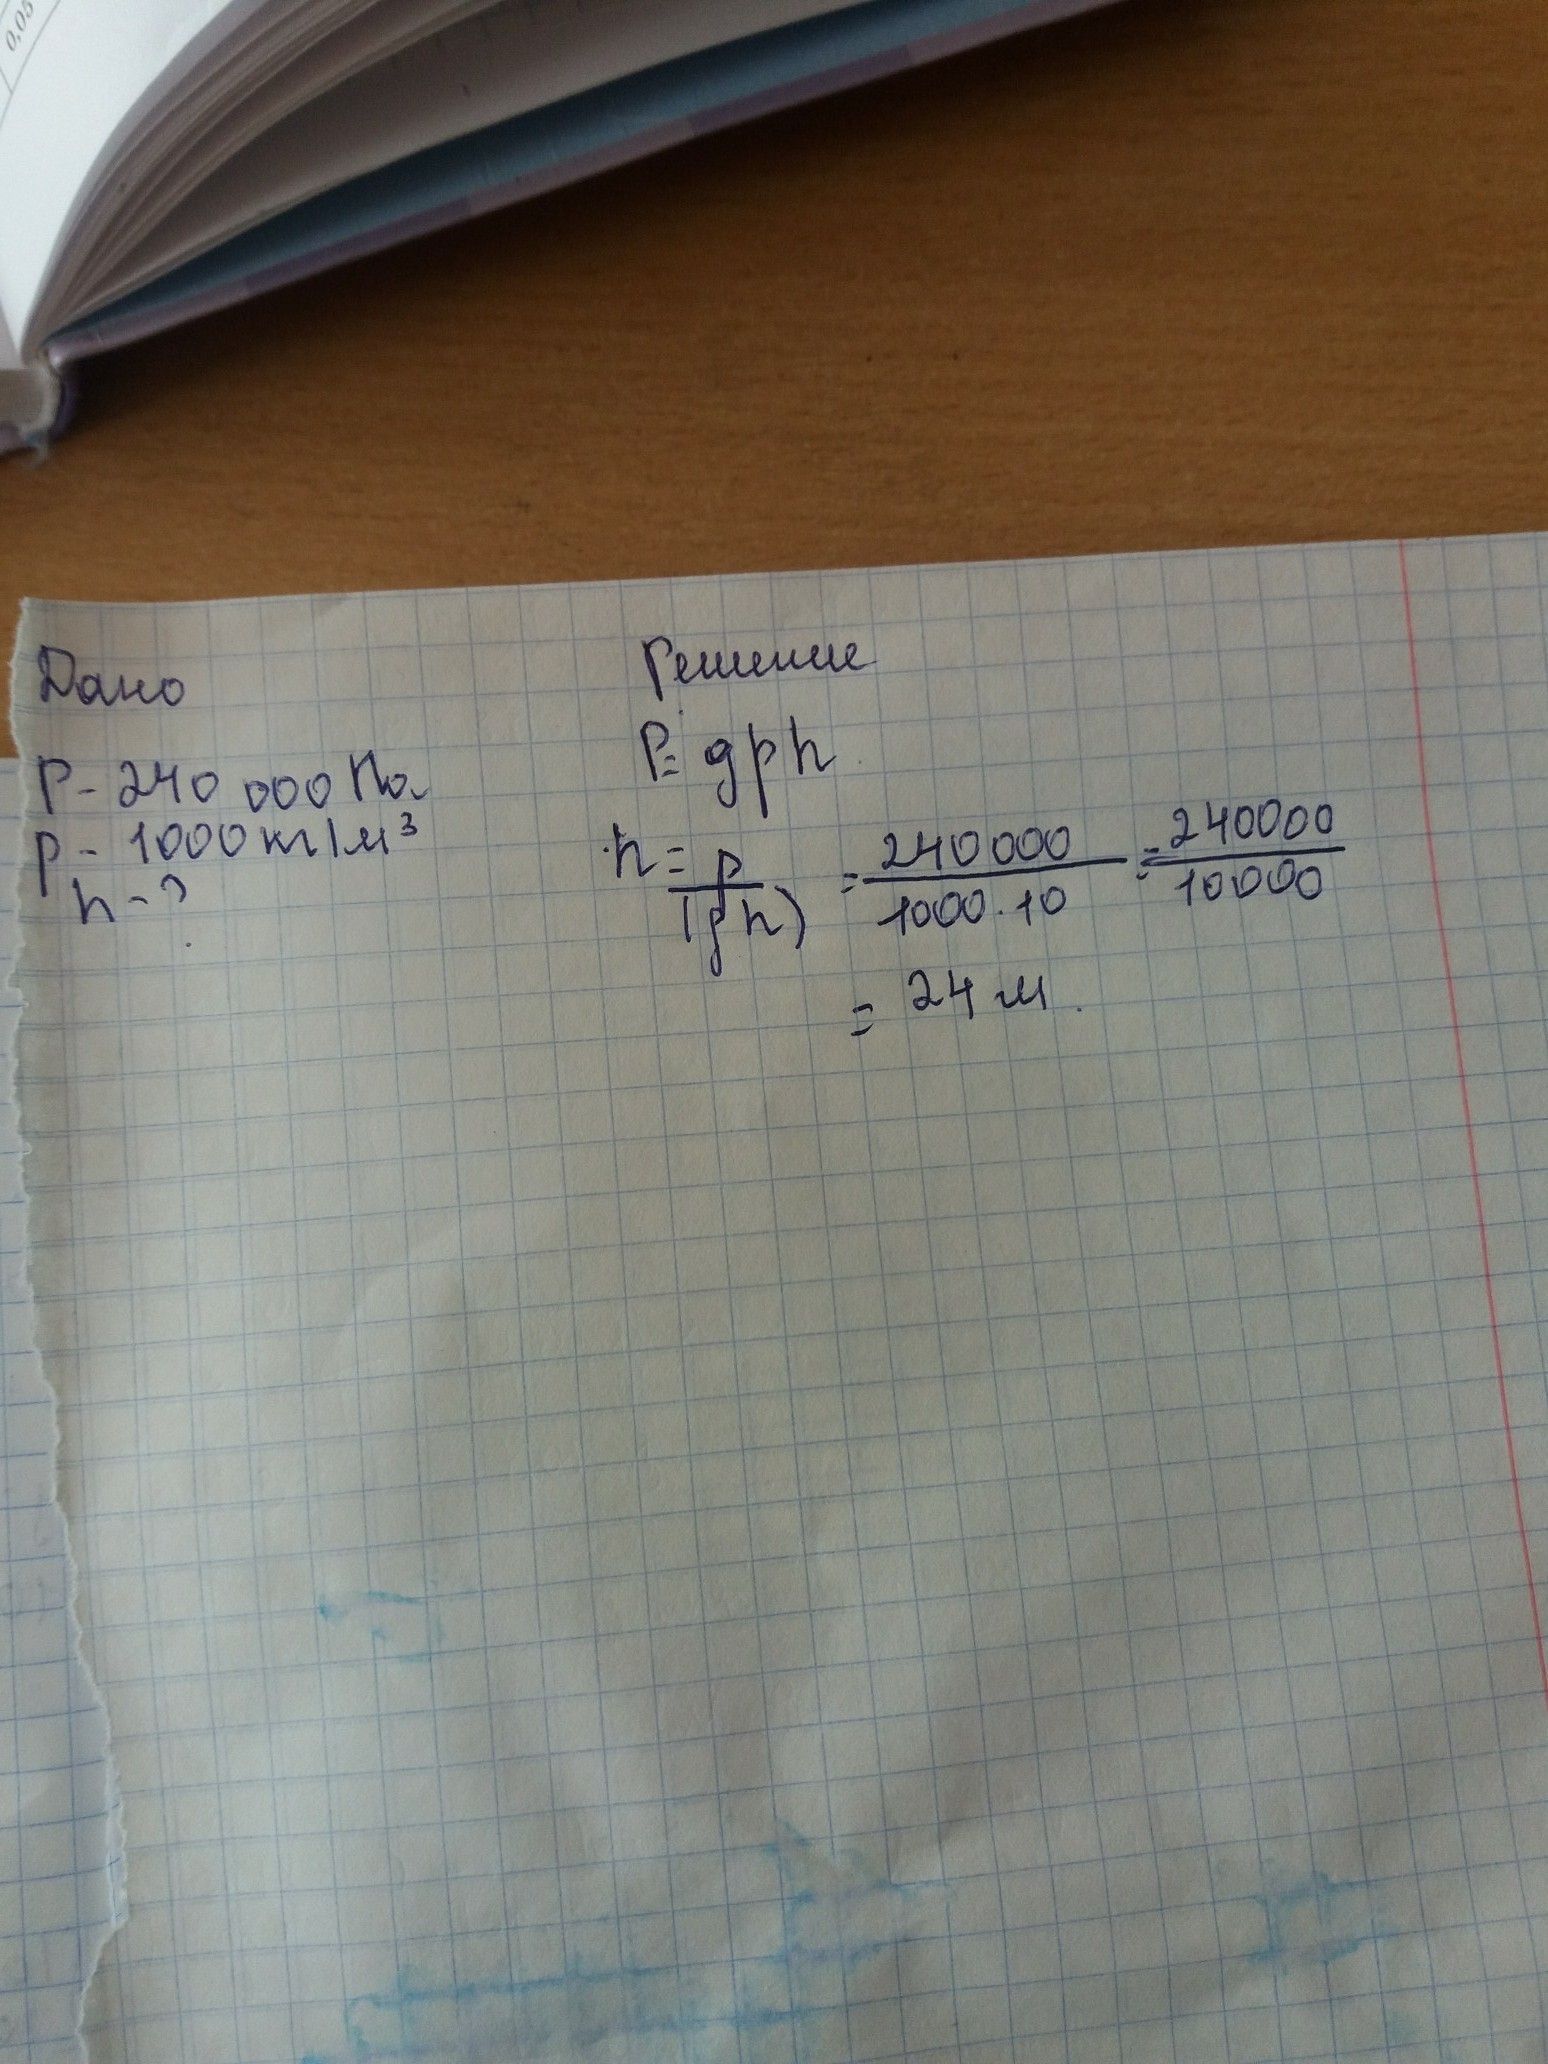 0,05
Дано
P - 240 000 Па
p - 1000 кг/м³
h - ?
Решение
P = gph
h = p/(gh) = 240 000/1000·10 = 240000/10000
= 24 м.